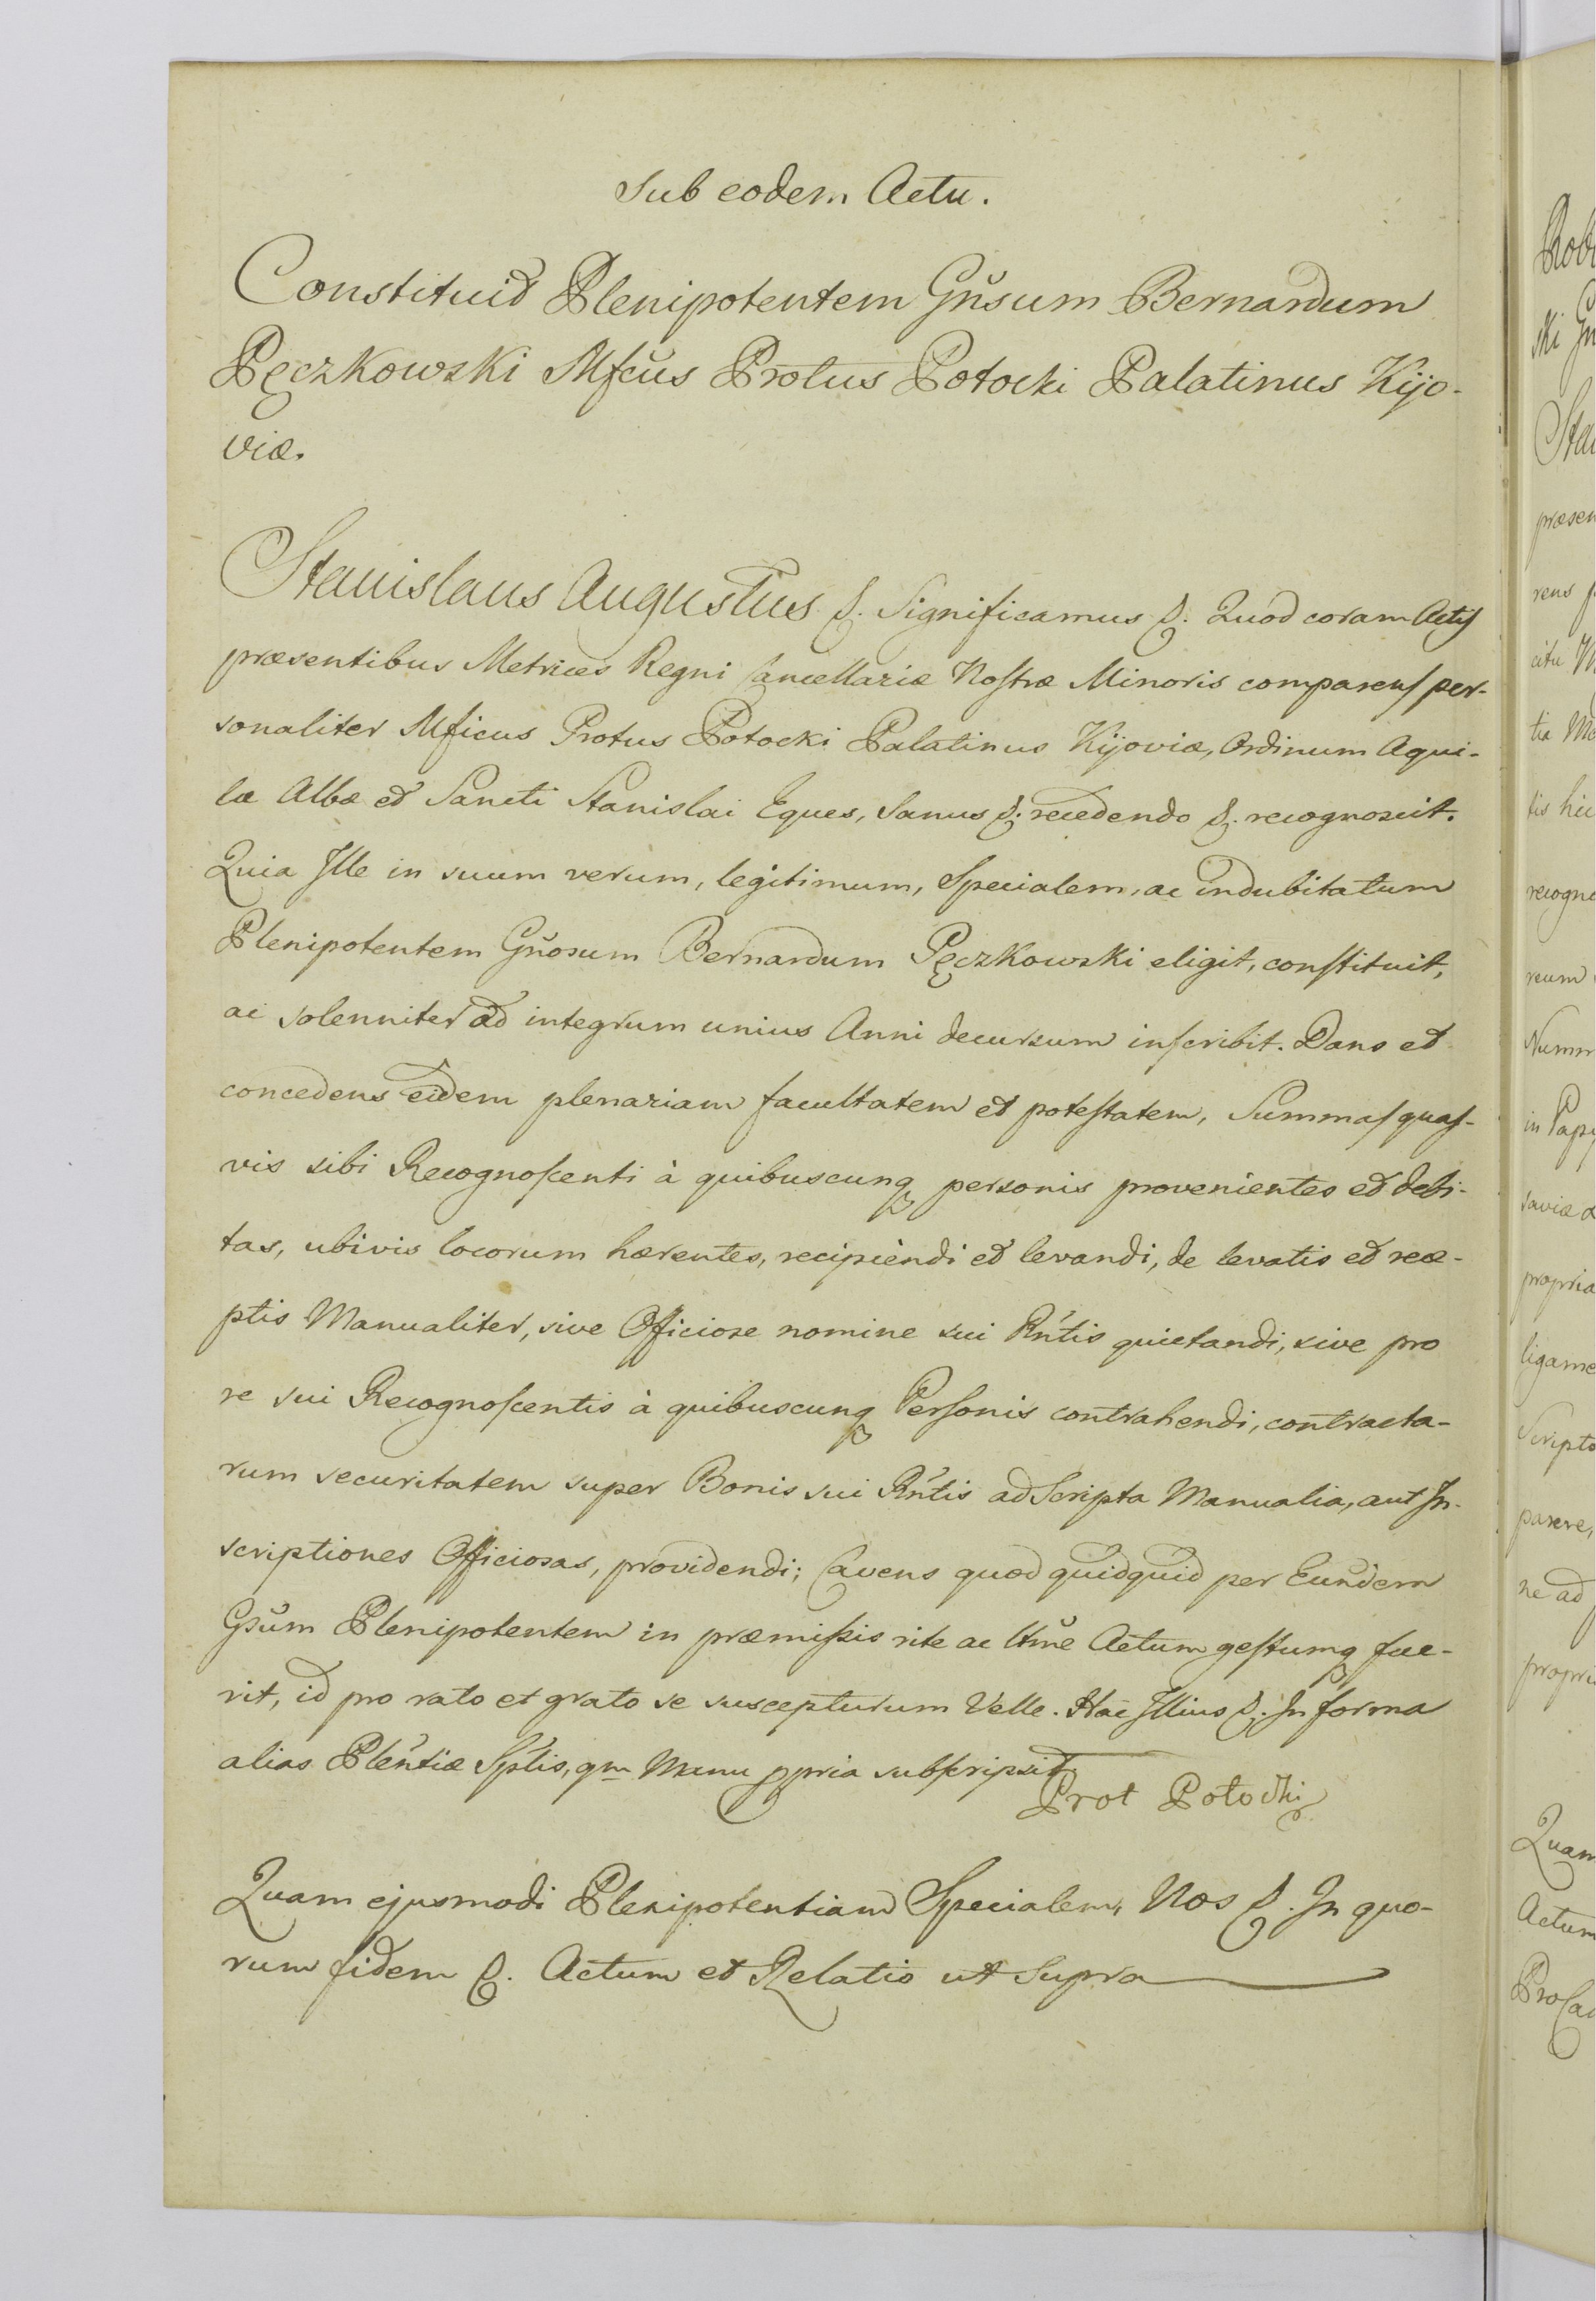 Sub eodem Actu.
Constituit Plenipotentem Gnsum Bernardum
Pęczkowski Mfcus Protus Potocki Palatinus Kijo-
viæ.
Stanislaus Augustus &. Significamus &. Quod coram Actis
præsentibus Metrices Regni Cancellariæ Nostræ Minoris comparens per-
sonaliter Mficus Protus Potocki Palatinus Kijoviæ, Ordinum Aqui-
læ Albæ et Sancti Stanislai Eques, Sanus &. recedendo &. recognoscit.
Quia Ille in suum verum, legitimum, Specialem, ac indubitatum
Plenipotentem Gnosum Bernardum Pęczkowski eligit, constituit,
ac solenniter ad integrum unius Anni decursum inscribit. Dans et
concedens eidem plenariam facultatem et potestatem, Summas quas-
vis sibi Recognoscenti à quibuscunq personis provenientes et debi-
tas, ubivis locorum hærentes, recipiendi et levandi, de levatis et rece-
ptis Manualiter, sive Officiose nomine sui Rntis quietandi, sive pro
re sui Recognoscentis à quibuscunq Personis contrahendi, contracta-
rum securitatem super Bonis sui Rntis ad Scripta Manualia, aut In-
scriptiones Officiosas, providendi; Cavens quod quidquid per Eundem
Gsum Plenipotentem in præmissis rite ac ltme Actum gestumq fue-
rit, id pro rato et grato se suscepturum Velle. Hac Illius &. In forma
alias Plentiæ Splis, qm Manu ppria subscripsit
Prot Potocki
Quam ejusmodi Plenipotentiam Specialem, Nos &. In quo-
rum fidem &. Actum et Relatio ut Supra